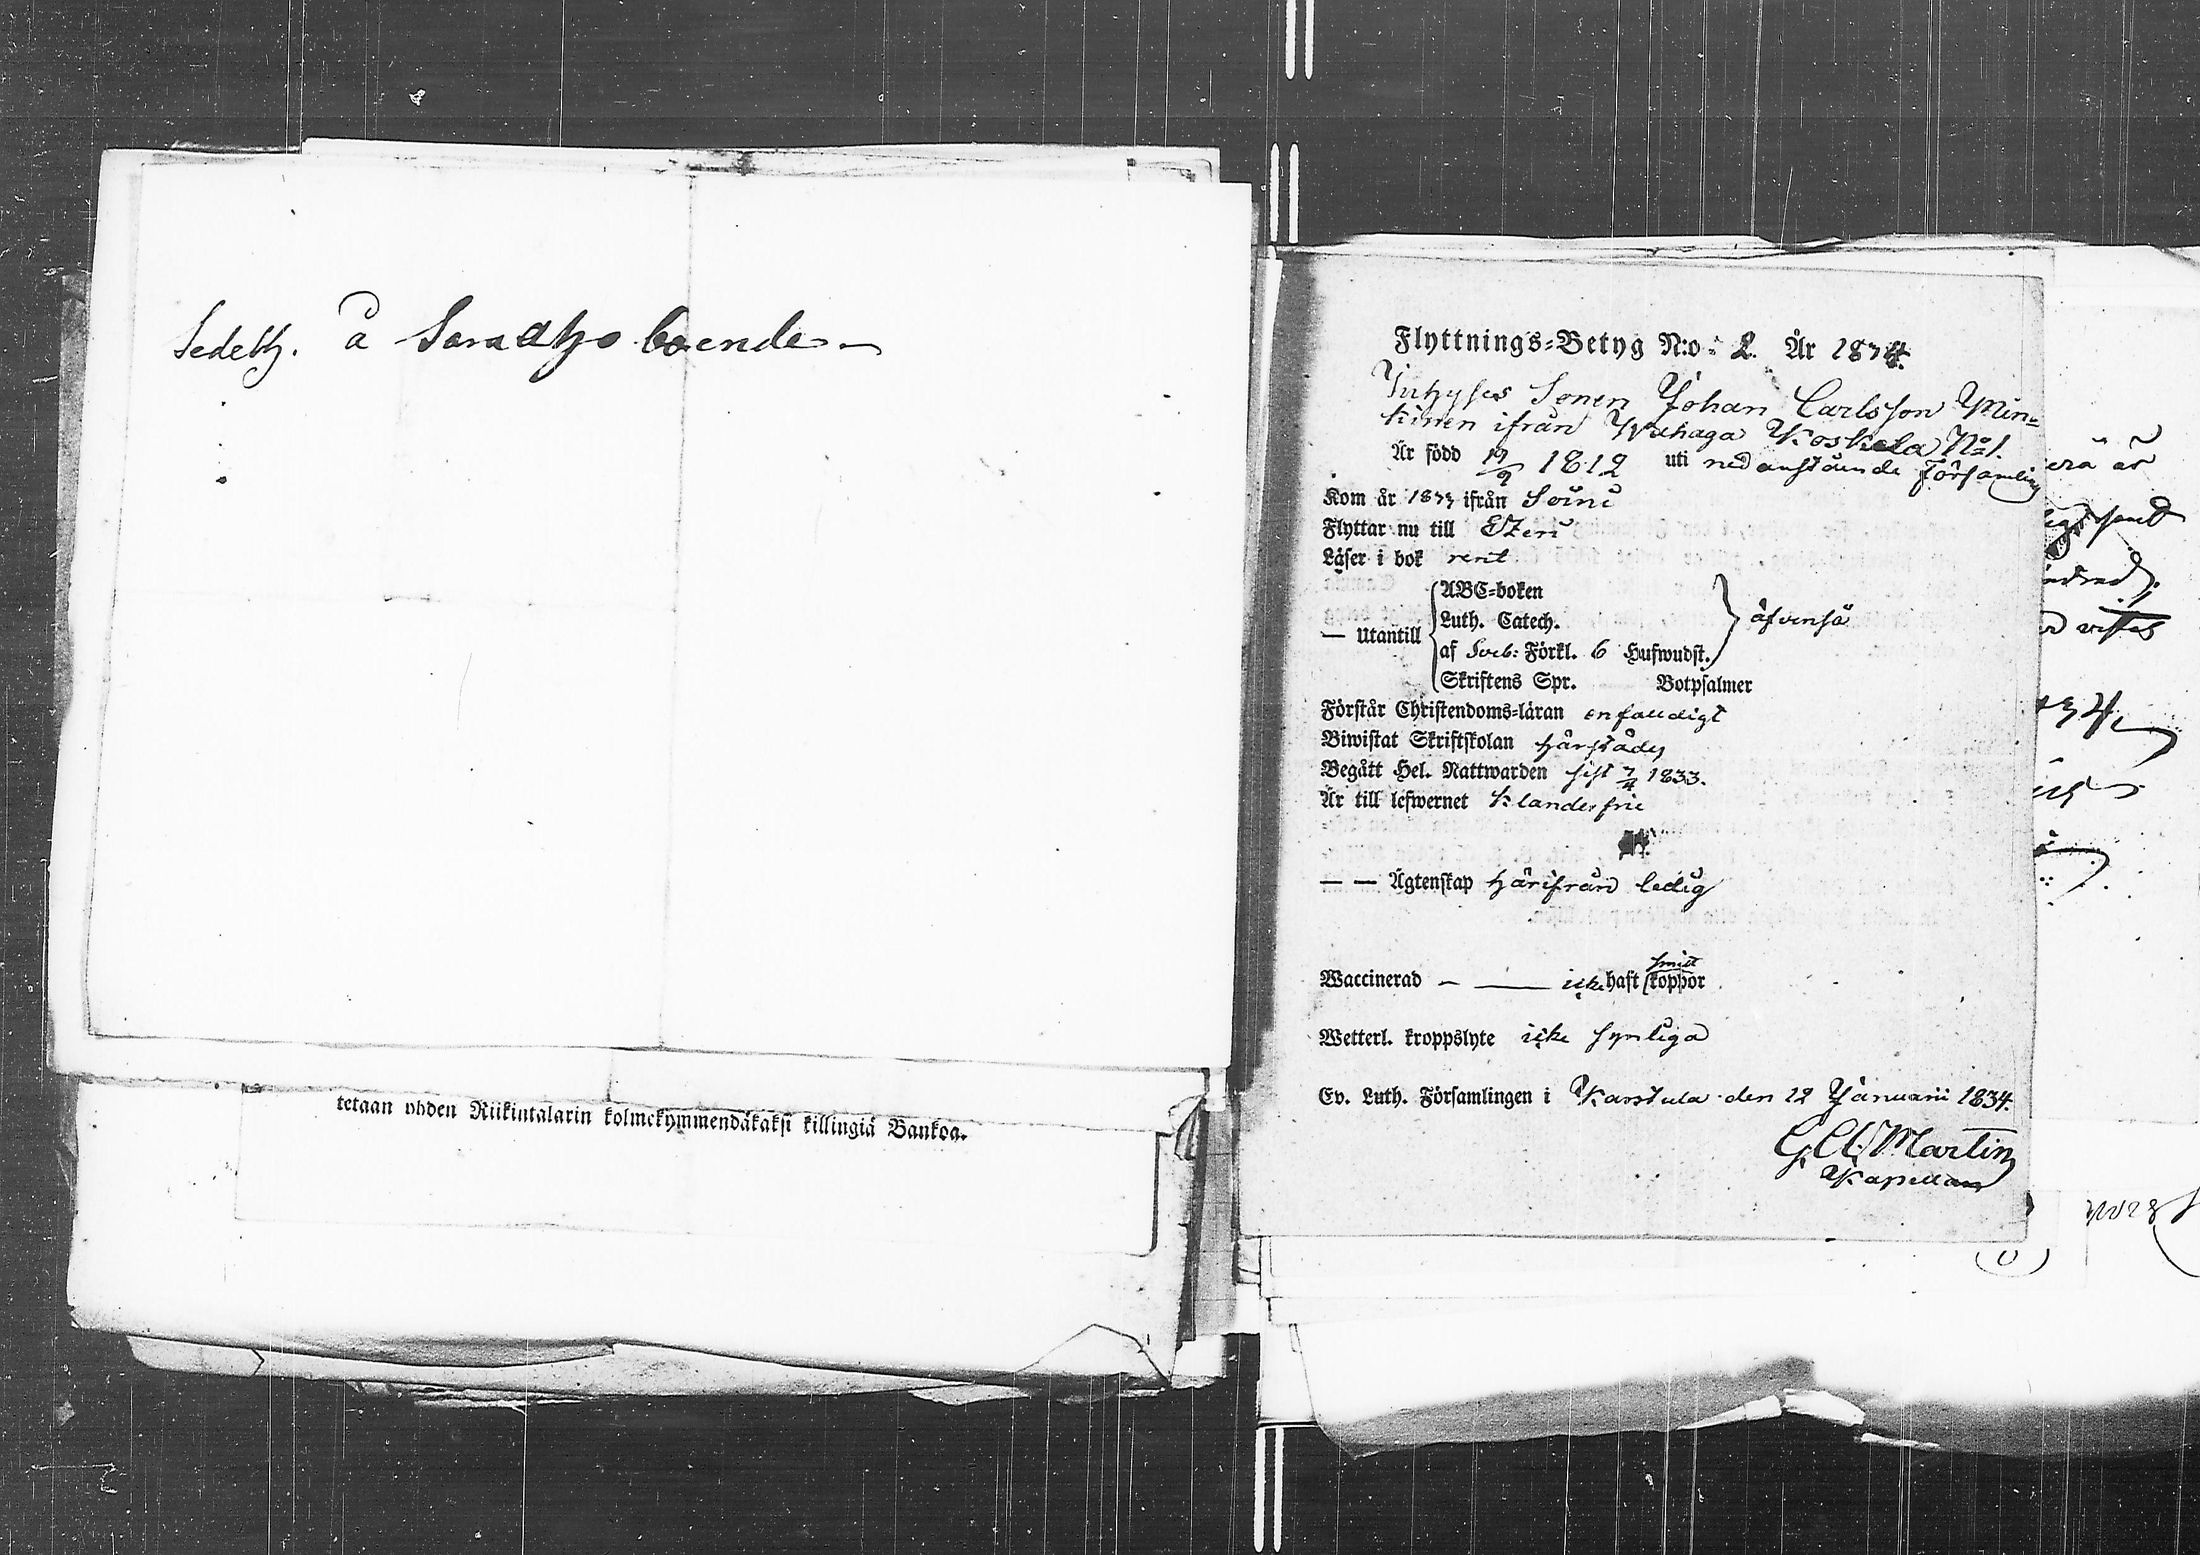 Sedelh. å boende
tetaan yhden Riikintalarin kolmekymmendäkaksi killingiä Bankoa.
Flyttnings-Betyg N:o 2. År 1834.
Inhyses Sonen Johan Carlsson Min=
kinen ifrån Wahaga Koskela No 1.
Är född 17/9 1812 uti nedanstående Församling
Kom år 1833 ifrån Soini
Flyttar nu till Etzeri
Läser i bok rent
— Utantill
ABC-boken
Luth. Catech.
af Sveb: Förkl. 6 Hufwudst.
äfvenså
Skriftens Spr. Botpsalmer
Förstår Christendoms-läran enfaldigt
Biwistat Skriftskolan härstädes
Begått Hel. Nattwarden sist 7/4 1833.
Är till lefwernet klanderfri
— — Ägtenskap härifrån ledig
Waccinerad — — icke haft smitt koppor
Wetterl. kroppslyte icke synliga
Ev. Luth. Församlingen i Karstula den 12 Januarii 1834.
Martin
Kapellan